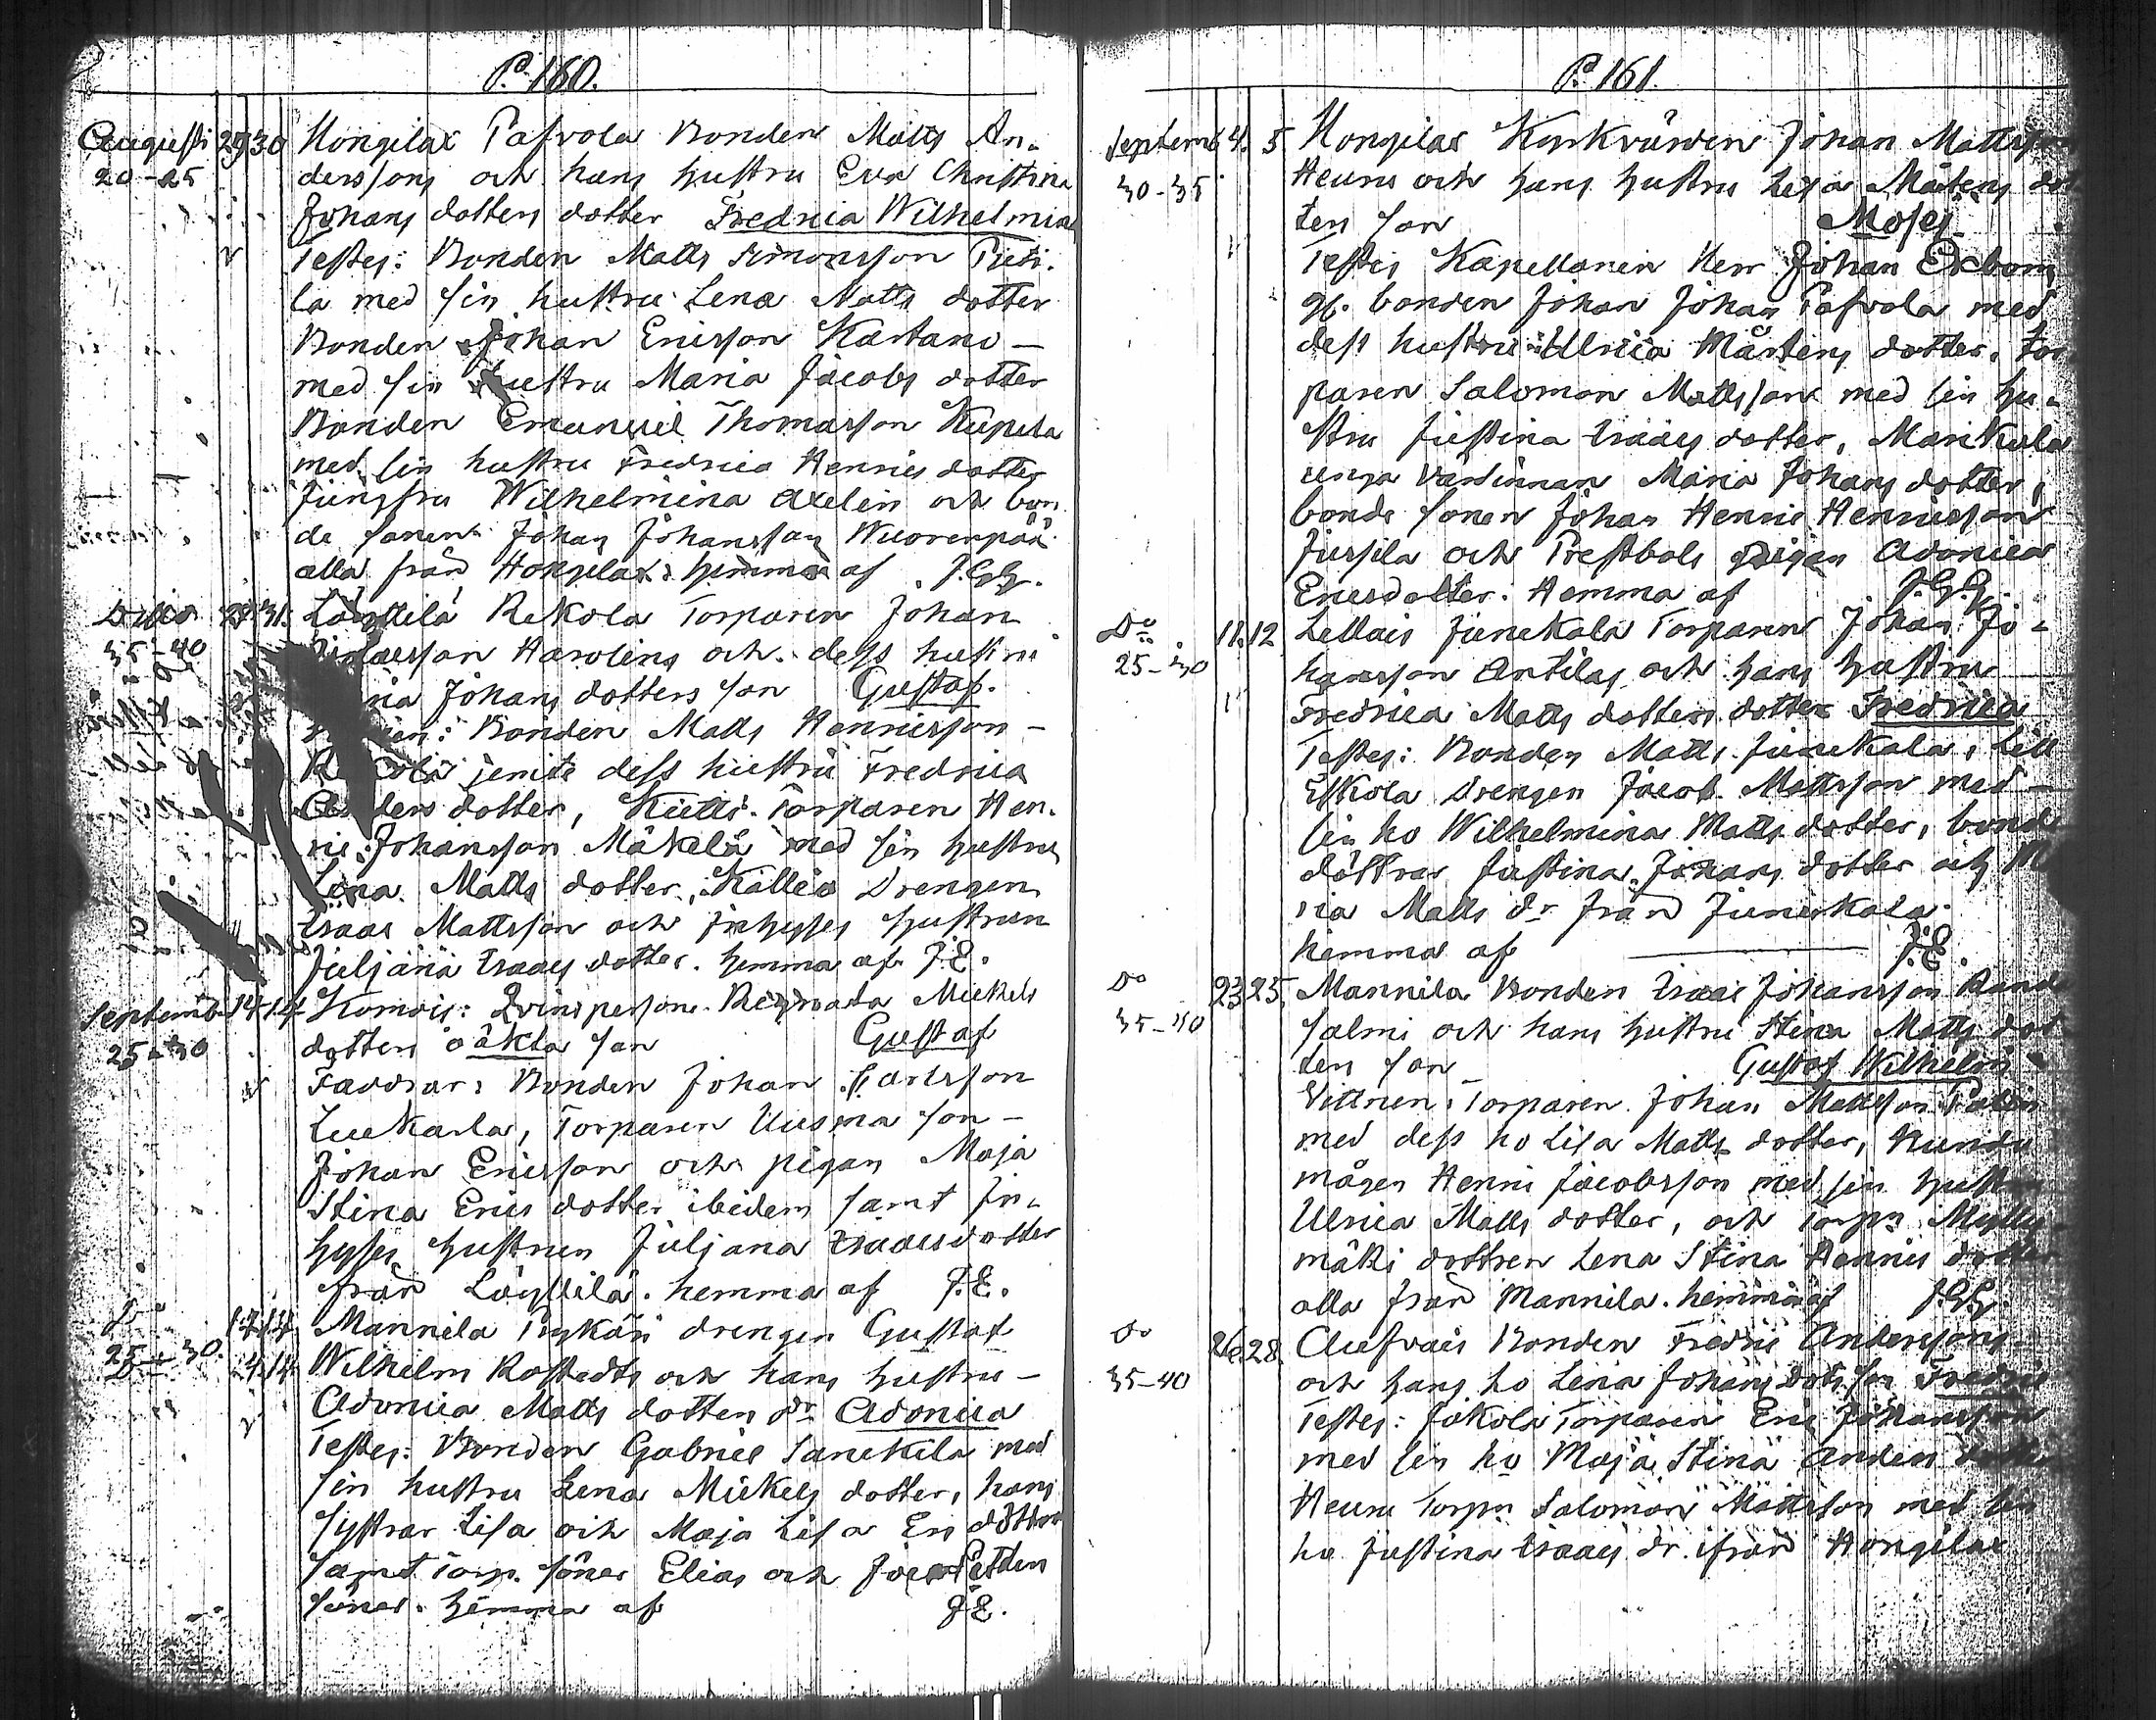 P. 160.
Augusti 29 30 Hongilax Pafvola Bonden Matts An-
20-25 derssons och hans hustru Eva Christina
Johans dotters dotter Fredrica Wilhelmina
Testes: Bonden Matts Simonsson Pieti-
la med sin hustru Lena Matts dotter
Bonden Johan Ericsson Kartano -
med sin hustru Maria Jacobs dotter
Bonden Emanuel Thomasson
med sin hustru Fredrica Henrics dotter
Jungfru Wilhelmina Axelin och bon
de sonen Johan Johansson Wuorenpää
alla från Hongelax: hemma af J.G.G.
Ditto 31. Löyttilä Rekola Torparen Johan
35-40 Harolins och dess hustru
Johans dotters son Gustaf.
Bonden Matts Henricsson -
jemte dess hustru Fredrica
Anders dotter, Torparen Hen-
ric Johansson Mäkelä med sin hustru
Lena Matts dotter, Kallio Drengen
Isaac Mattsson och Inhyses hustrun
Juljana Isaacs dotter. hemma af J.E.
Septemb. 14 14 Qvinsperson Mickels
25-30 dotters oäkta son Gustaf
Faddrar: Bonden Johan Carlsson
Torparen Uusma son -
Johan Ericsson och pigan Maja
Stina Erics dotter ibidem samt In-
hyses hustrun Juljana Isaacsdotter
från Löyttilä. hemma af J.E.
Do 14 Mannila drengen Gustaf
25-30 14 14 Wilhelm Rostedts och hans hustru -
Adonica Matts dotters dr Adonica
Testes: Bonden Gabriel med
sin hustru Lena Mickels dotter, hans
systrar Lisa och Maja Lisa döttrar
samt Torp. söner Elias och
söner. hemma af J.E.
P. 161.
Septemb 4. 5 Hongilax Kyrkvärden Johan Mattsson
30-35 Heuru och hans hustru Lisa Mårtens dot
ters son Moses
Testes Kapellanen Herr Johan Ekbom
gf. bonden Johan Johan Pafvola med
dess hustru Ulrica Mårtens dotter. Tor
paren Salomon Mattsson med sin hu-
stru Justina Isaacs dotter, Marikula
unga värdinnan Maria Johans dotter,
bonde sonen Johan Henric Henricsson
Jussila och Prestbols pigan Adonica
Ericsdotter. Hemma af J.G.G.
Do 11. 12 Lellais Junekala Torparen Johan Jo-
25-30 hansson Antilas och hans hustru
Fredrica Matts dotters dotter Fredrica
Testes: Bonden Matts Junekala, Lill
Eskola Drengen Jacob Mattsson med -
sin ho Wilhelmina Matts dotter, bond
döttrar Justina Johans dotter och Ma
ria Matts dr från Junnikala.
hemma af J.E.
Do 23 25. Mannila Bonden Isaac Johansson Rand
35-40 salmi och hans hustru Stina Matts dot
ters son Gustaf Wilhelm
Vittnen: Torparen Johan Mattsson
med dess ho Lisa Matts dotter,
mågen Henric Jacobsson med sin hustru
Ulrica Matts dotter, och Torpn Mylly-
mäki dottren Lena Stina Henrics dotter
alla från Mannila. hemma af J.G.G.
Do 26. 28. Aufvais Bonden Fredric Anderssons
35-40 och hans ho Lena Johans dots son Fredric
Testes: Jäkola Torparen Eric Johansson
med sin ho Maja Stina Anders dotter
Heuru Torpn Salomon Mattsson med sin
ho Justina Isaacs dr. ifrån Hongilax